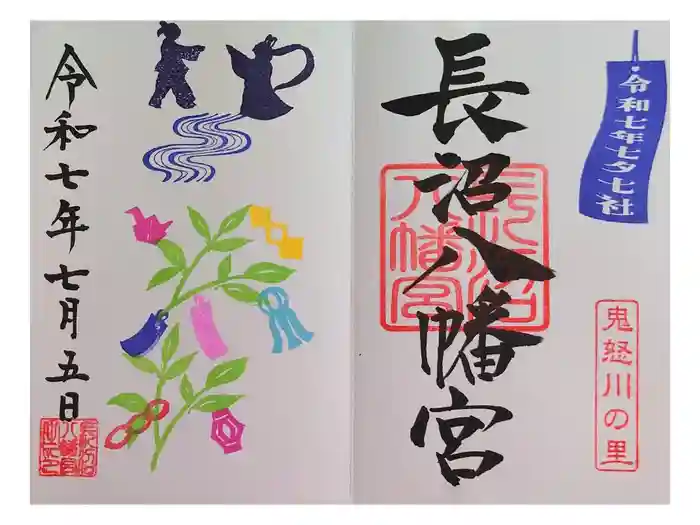 令和七年七夕七社
長沼八幡宮
長沼八幡宮
鬼怒川の里
令和七年七月五日